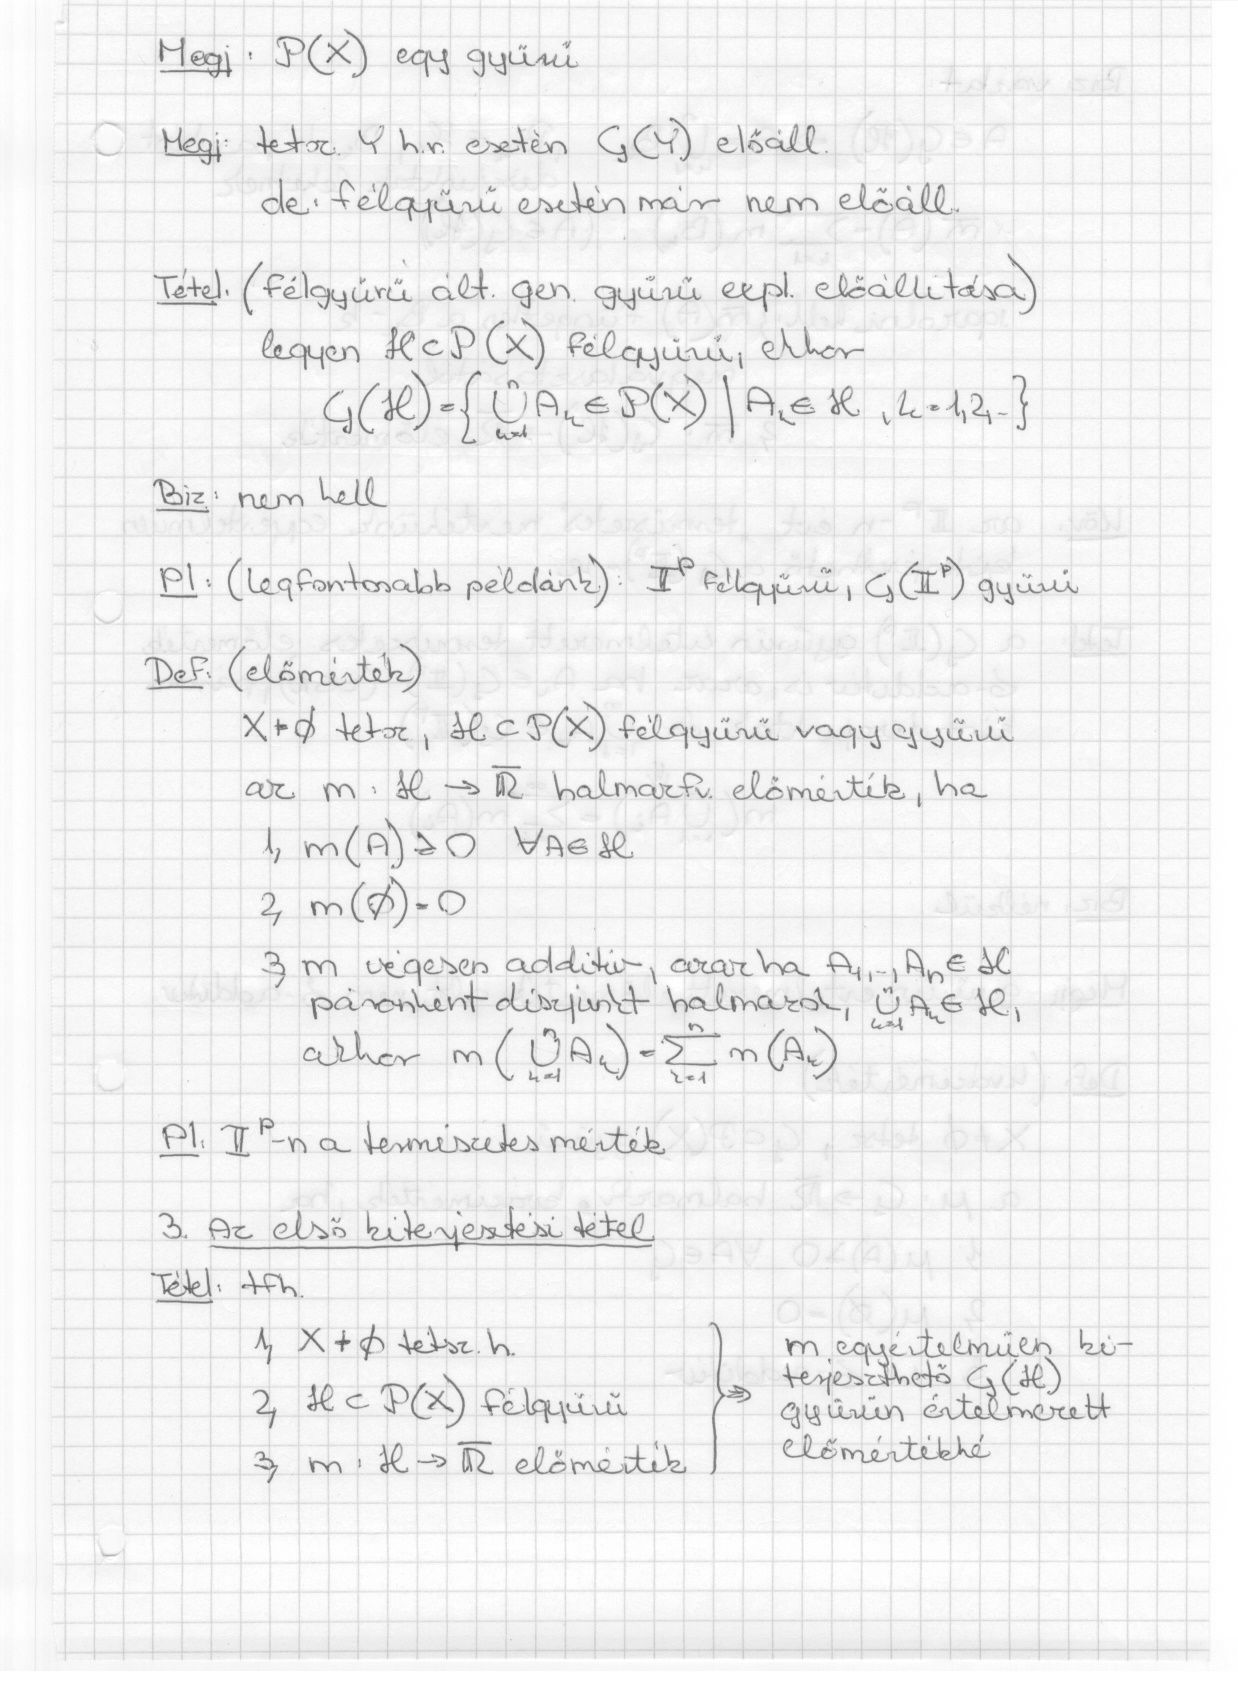 Megj: P(X) egy gyűrű
Megj: tetsz. Y h.r. esetén G(Y) előáll.
de: félgyűrű esetén már nem előáll.
Tétel: (félgyűrű ált. gen. gyűrű expl. előállítása)
legyen H ⊂ P(X) félgyűrű, ekkor
G(H) = { ⋃ₖ₌₁ⁿ Aₖ ∈ P(X) | Aₖ ∈ H, k = 1,2,.. }
Biz: nem kell
Pl: (legfontosabb példánk): 𝕀ᵖ félgyűrű, G(𝕀ᵖ) gyűrű
Def: (előmérték)
X ≠ ∅ tetsz, H ⊂ P(X) félgyűrű vagy gyűrű
az m: H → ℝ̅ halmazfv. előmérték, ha
1, m(A) ≥ 0 ∀A ∈ H
2, m(∅) = 0
3, m végesen additív, azaz ha A₁,..,Aₙ ∈ H
páronként diszjunkt halmazok, ⋃ₖ₌₁ⁿ Aₖ ∈ H,
akkor m(⋃ₖ₌₁ⁿ Aₖ) = ∑ₖ₌₁ⁿ m(Aₖ)
Pl: 𝕀ᵖ-n a természetes mérték
3. Az első kiterjesztési tétel
Tétel: tfh.
1, X ≠ ∅ tetsz. h.
2, H ⊂ P(X) félgyűrű
3, m: H → ℝ̅ előmérték
} ⇒ m egyértelműen ki-
terjeszthető G(H)
gyűrűn értelmezett
előmértékké